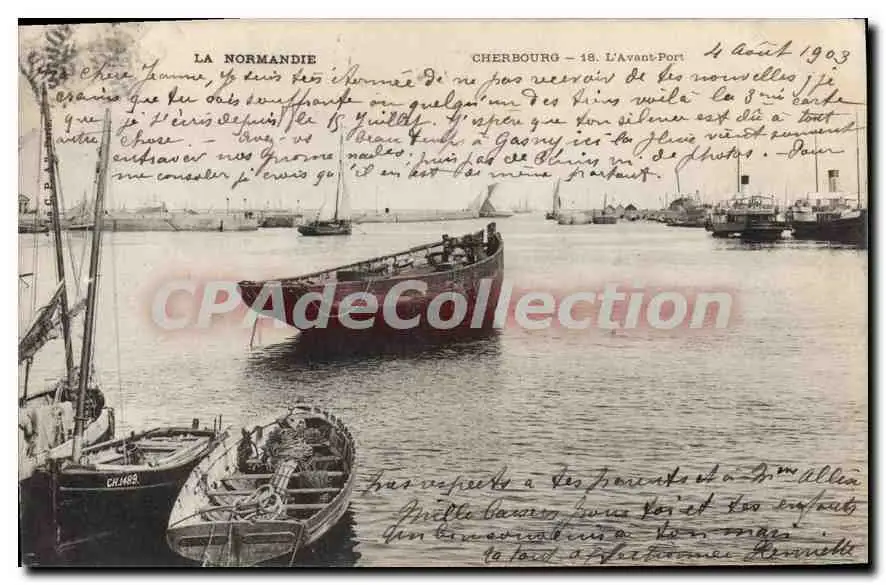 LA NORMANDIE
CHERBOURG – 18. L'Avant-Port
4 Août 1903
Chère Jeanne, je suis très étonnée de ne pas recevoir de tes nouvelles, je
crains que tu sois souffrante ou quelqu'un des tiens voilà la 3ème carte
que je t'écris depuis le 15 Juillet. J'espère que ton silence est dû à tout
autre chose. – Avez-vous beau temps à Gasny ici la pluie vient souvent
entraver nos promenades, puis pas de bains ni de photos. – Pour
me consoler je crois qu'il en est de même partout.
CPACollection.com
CH.1489.
mes respects à tes parents et à Mme
Mille baisers pour toi et tes enfants
Un bonsoir à ton mari
Henriette